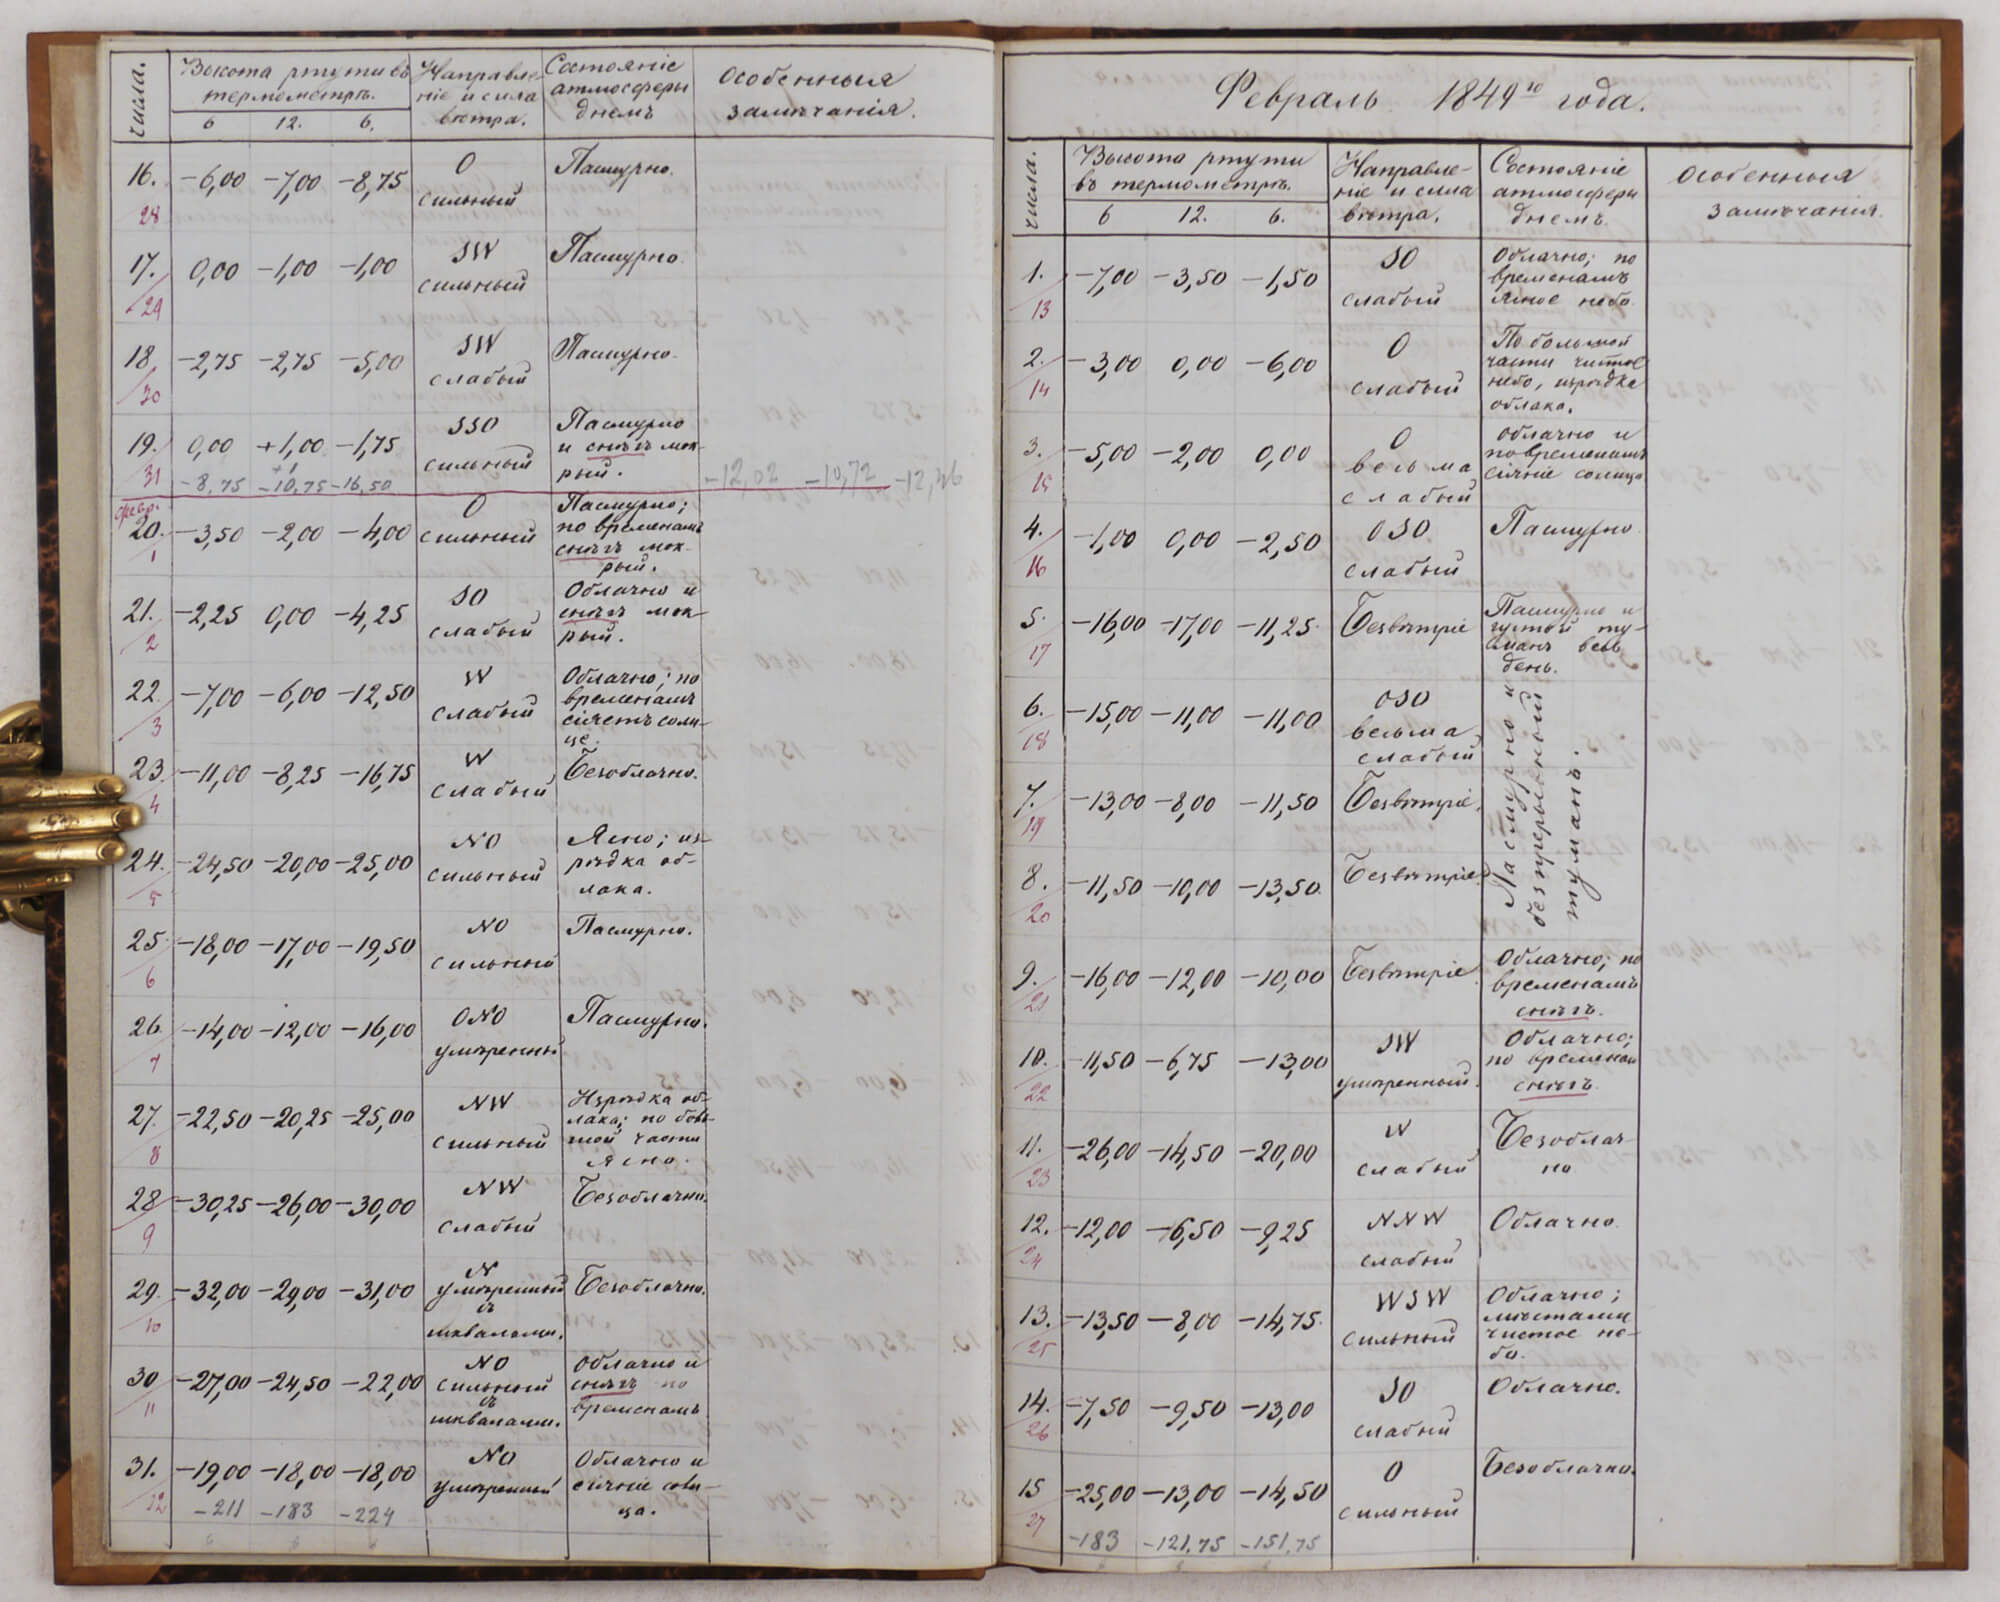 числа. Высота ртути въ термометрѣ. Направле- ніе и сила вѣтра. Состояніе атмосферы днемъ Особенныя замѣчанія.
6 12. 6.
16. −6,00 −7,00 −8,75 O сильный Пасмурно.
28
17. 0,00 −1,00 −1,00 SW сильный Пасмурно.
29
18. −2,75 −2,75 −5,00 SW слабый Пасмурно.
30
19. 0,00 +1,00 −1,75 SSO сильный Пасмурно и снѣгъ мок- рый.
31 −8,75 −10,75 −16,50 −12,02 −10,72 −12,46
февр.
20. −3,50 −2,00 −4,00 O сильный Пасмурно; по временамъ снѣгъ мок- рый.
1
21. −2,25 0,00 −4,25 SO слабый Облачно и снѣгъ мок- рый.
2
22. −7,00 −6,00 −12,50 W слабый Облачно; по временамъ сіяетъ солн- це.
3
23. −11,00 −8,25 −16,75 W слабый Безоблачно.
4
24. −24,50 −20,00 −25,00 NO сильный Ясно; из- рѣдка об- лака.
5
25. −18,00 −17,00 −19,50 NO сильный Пасмурно.
6
26. −14,00 −12,00 −16,00 ONO умѣренный Пасмурно.
7
27. −22,50 −20,25 −25,00 NW сильный Изрѣдка об- лака; по боль- шой части ясно.
8
28 −30,25 −26,00 −30,00 NW слабый Безоблачно.
9
29. −32,00 −29,00 −31,00 N умѣренный съ шквалами. Безоблачно.
10
30 −27,00 −24,50 −22,00 NO сильный съ шквалами. Облачно и снѣгъ по временамъ
11
31. −19,00 −18,00 −18,00 NO умѣренный Облачно и сіяніе солн- ца.
12 −211 −183 −224
Февраль 1849го года.
числа. Высота ртути въ термометрѣ. Направле- ніе и сила вѣтра. Состояніе атмосферы днемъ. Особенныя замѣчанія.
6 12. 6.
1. −7,00 −3,50 −1,50 SO слабый Облачно; по временамъ ясное небо.
13
2. −3,00 0,00 −6,00 O слабый По большой части чистое небо, изрѣдка облака.
14
3. −5,00 −2,00 0,00 O весьма слабый Облачно и по временамъ сіяніе солнца
15
4. −1,00 0,00 −2,50 OSO слабый Пасмурно
16
5. −16,00 −17,00 −11,25 Безвѣтріе Пасмурно и густой ту- манъ весь день.
17
6. −15,00 −11,00 −11,00 OSO весьма слабый Пасмурно и безпрерывный туманъ.
18
7. −13,00 −8,00 −11,50 Безвѣтріе.
19
8. −11,50 −10,00 −13,50 Безвѣтріе.
20
9. −16,00 −12,00 −10,00 Безвѣтріе. Облачно; по временамъ снѣгъ.
21
10. −11,50 −6,75 −13,00 SW умѣренный. Облачно; по временам снѣгъ
22
11. −26,00 −14,50 −20,00 W слабый Безоблач- но
23
12. −12,00 −6,50 −9,25 NNW слабый Облачно.
24
13. −13,50 −8,00 −14,75 WSW сильный Облачно; мѣстами чистое не- бо.
25
14. −7,50 −9,50 −13,00 SO слабый Облачно.
26
15 −25,00 −13,00 −14,50 O сильный Безоблачно.
27 −183 −121,75 −151,75